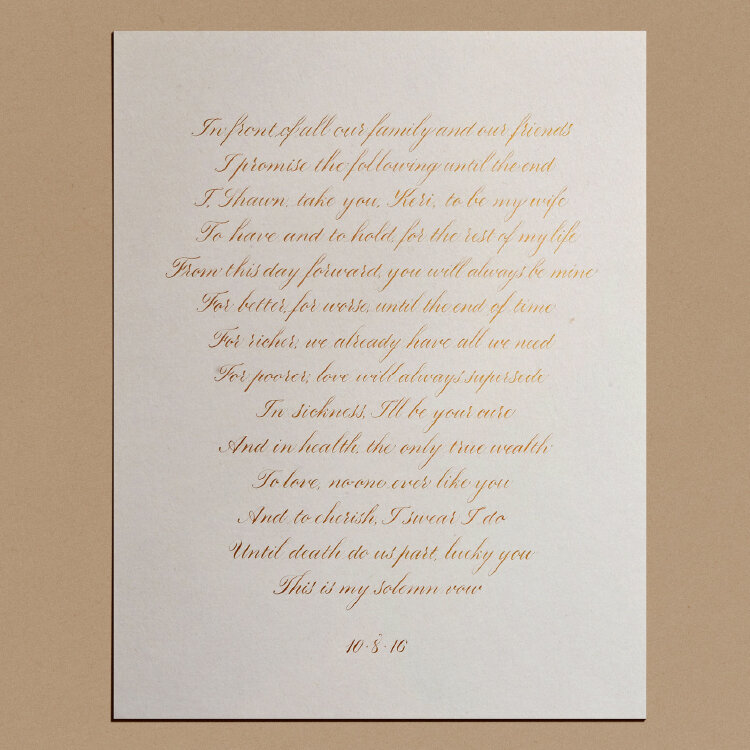 In front of all our family and our friends
I promise the following until the end
I, Shawn, take you, Keri, to be my wife
To have and to hold, for the rest of my life
From this day forward, you will always be mine
For better, for worse, until the end of time
For richer, we already have all we need
For poorer, love will always supersede
In sickness, I'll be your cure
And in health, the only true wealth
To love, no one ever like you
And to cherish, I swear I do
Until death do us part, lucky you
This is my solemn vow
10·8·16